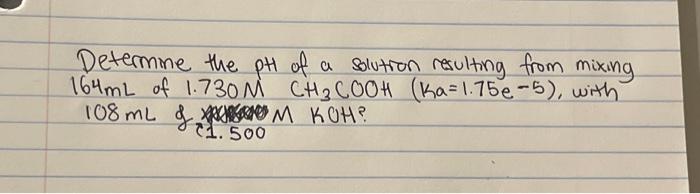 Determine the pH of a solution resulting from mixing
164mL of 1.730M CH3COOH (Ka=1.75e-5), with
108mL of M KOH?
1.500